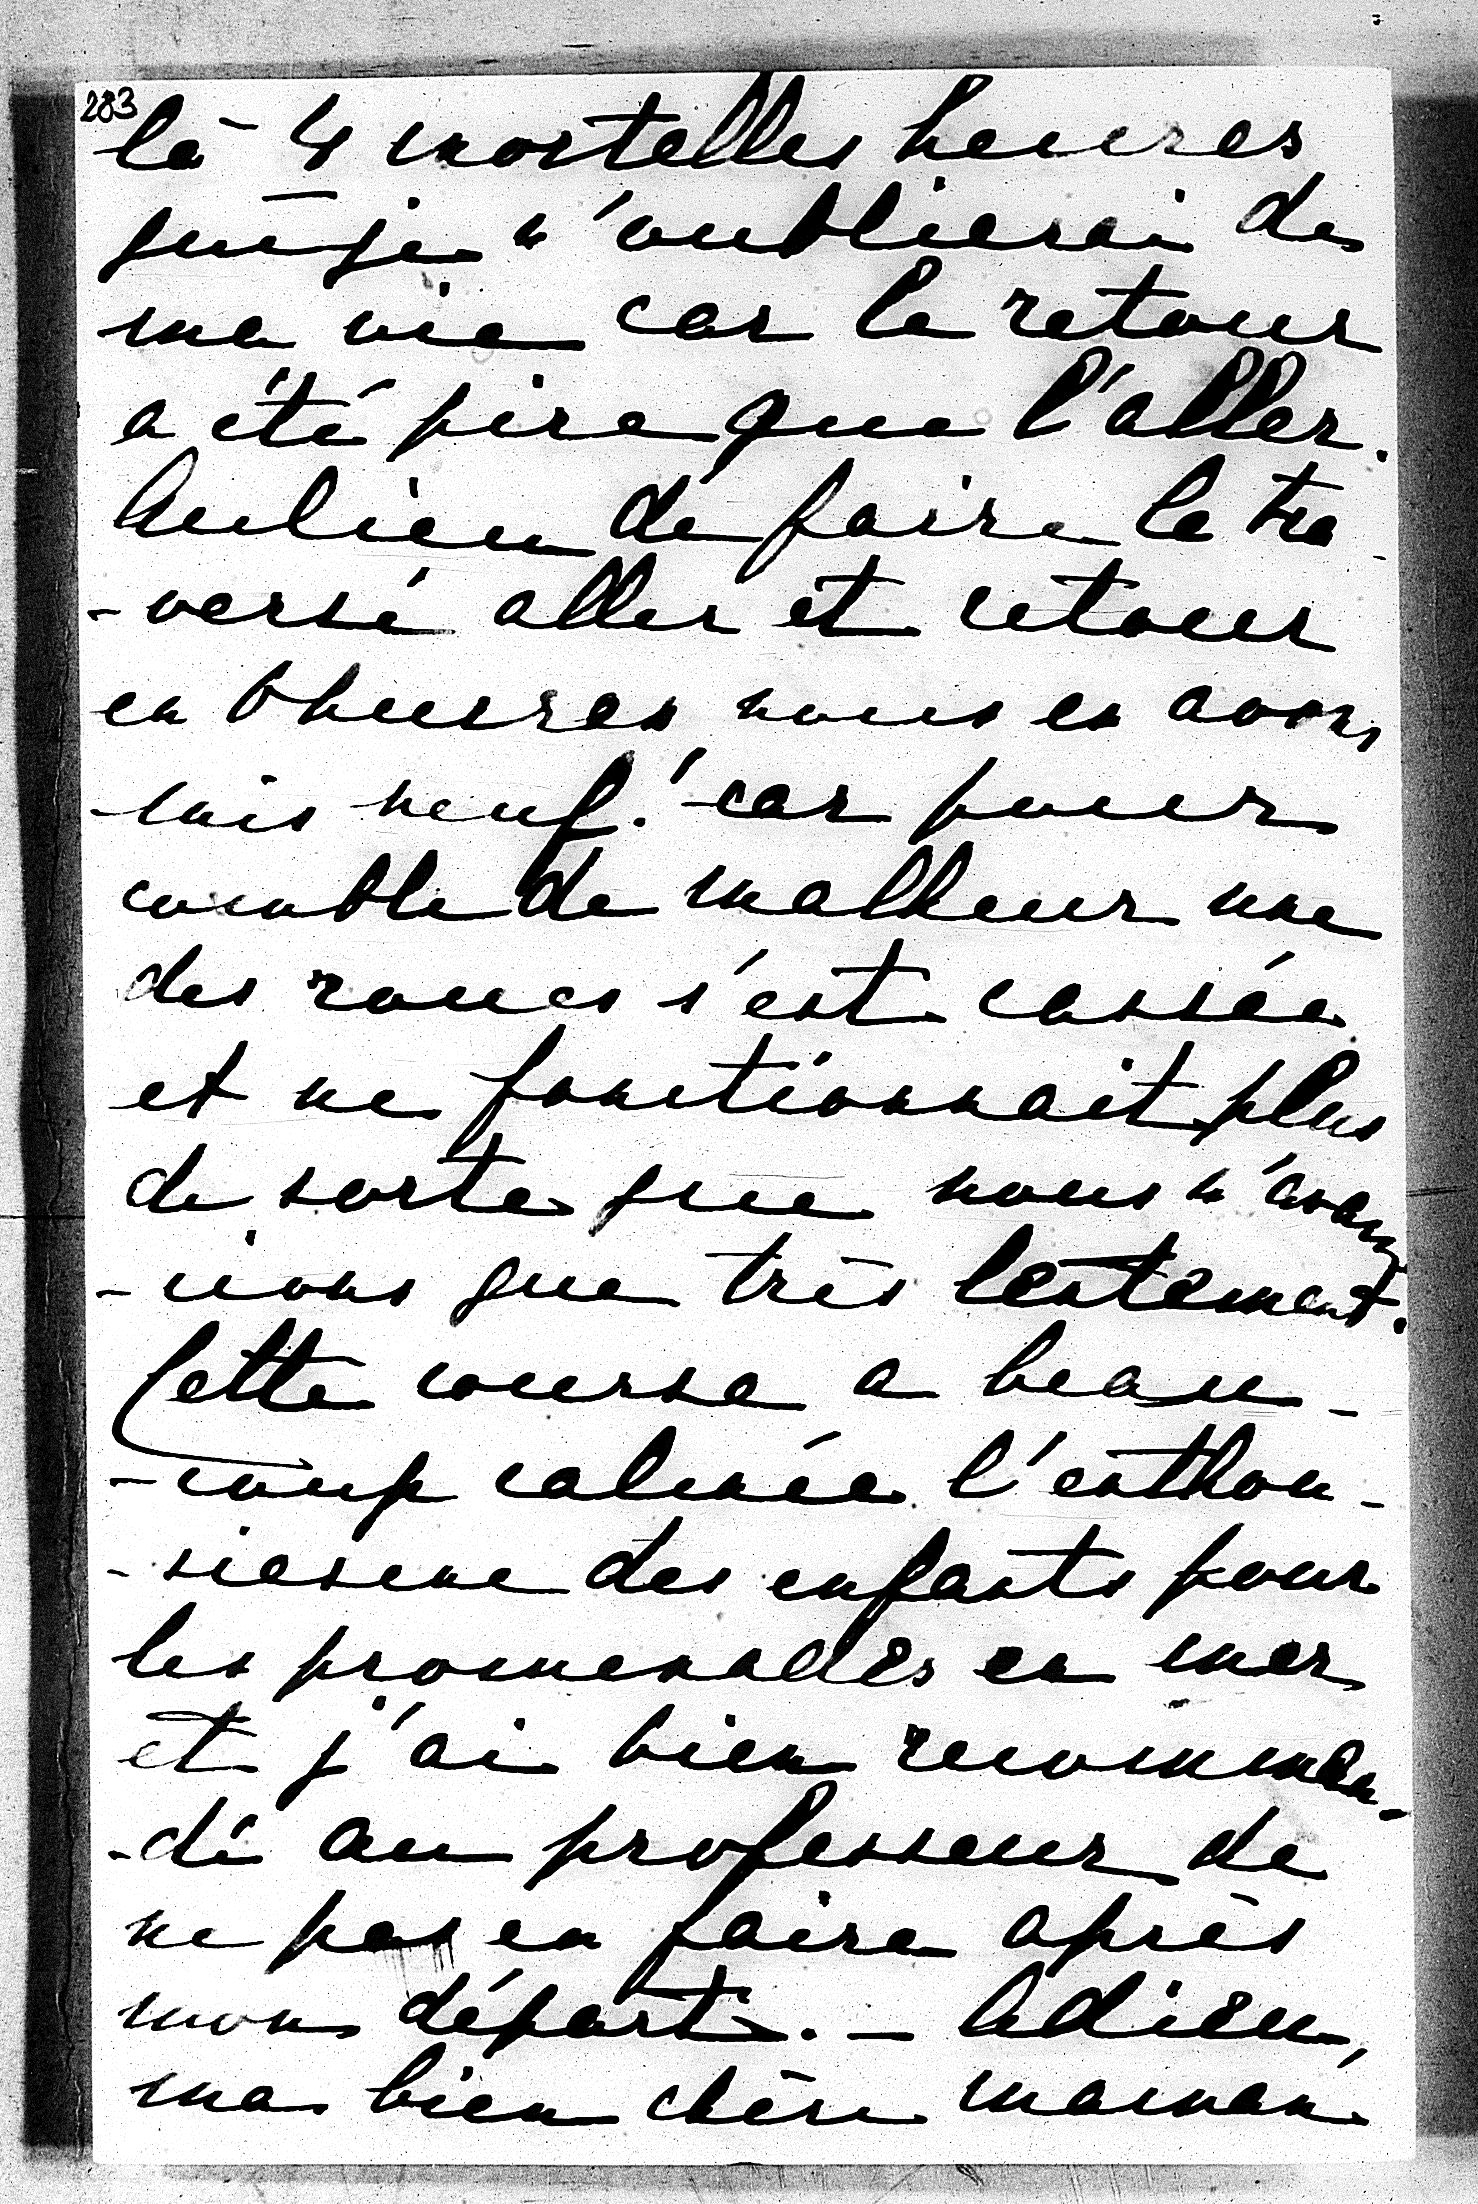 283
là 4 mortelles heures
que je n'oublierai de
ma vie car le retour
a été pire que l'aller.
Aulieu de faire la tra-
-versé aller et retour
en 6 heures nous en avons
mis neuf! car pour
comble de malheur une
des roues s'est cassée
et ne fonctionnait plus
de sorte que nous n'avan-
-cions que très lentement.
Cette course a beau-
-coup calmée l'enthou-
-siasme des enfants pour
les promenades en mer
et j'ai bien recomman-
-dé au professeur de
ne pas en faire après
mon départ. — Adieu,
ma bien chère maman